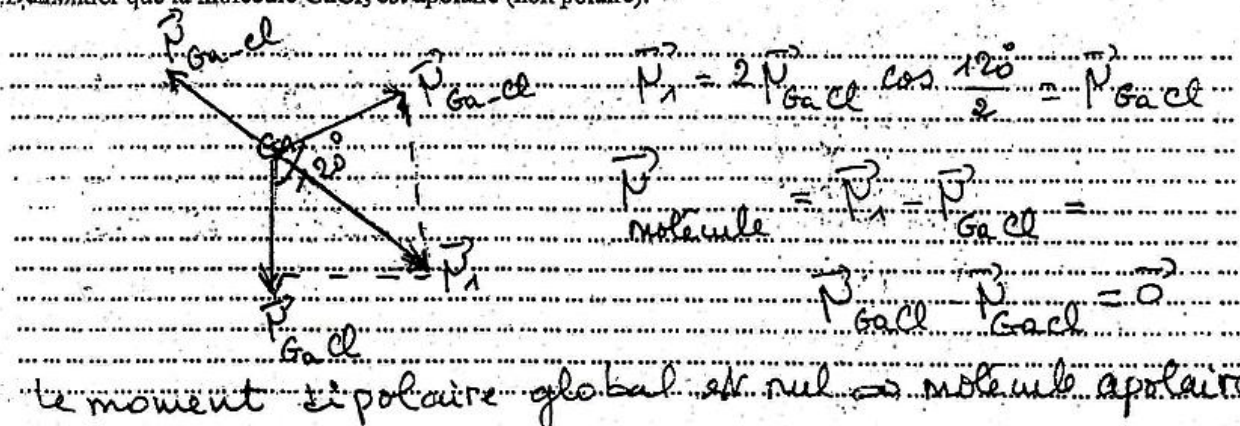 que la molécule GaCl3 est apolaire (non polaire).
μ⃗ Ga-Cl
μ⃗ Ga-Cl
μ⃗1 = 2 μ⃗ GaCl cos 120°/2 = μ⃗ GaCl
Ga
120°
μ⃗ molécule = μ⃗1 - μ⃗ GaCl =
μ⃗1
μ⃗ GaCl - μ⃗ GaCl = 0⃗
μ⃗ GaCl
Le moment dipolaire global est nul => molécule apolaire